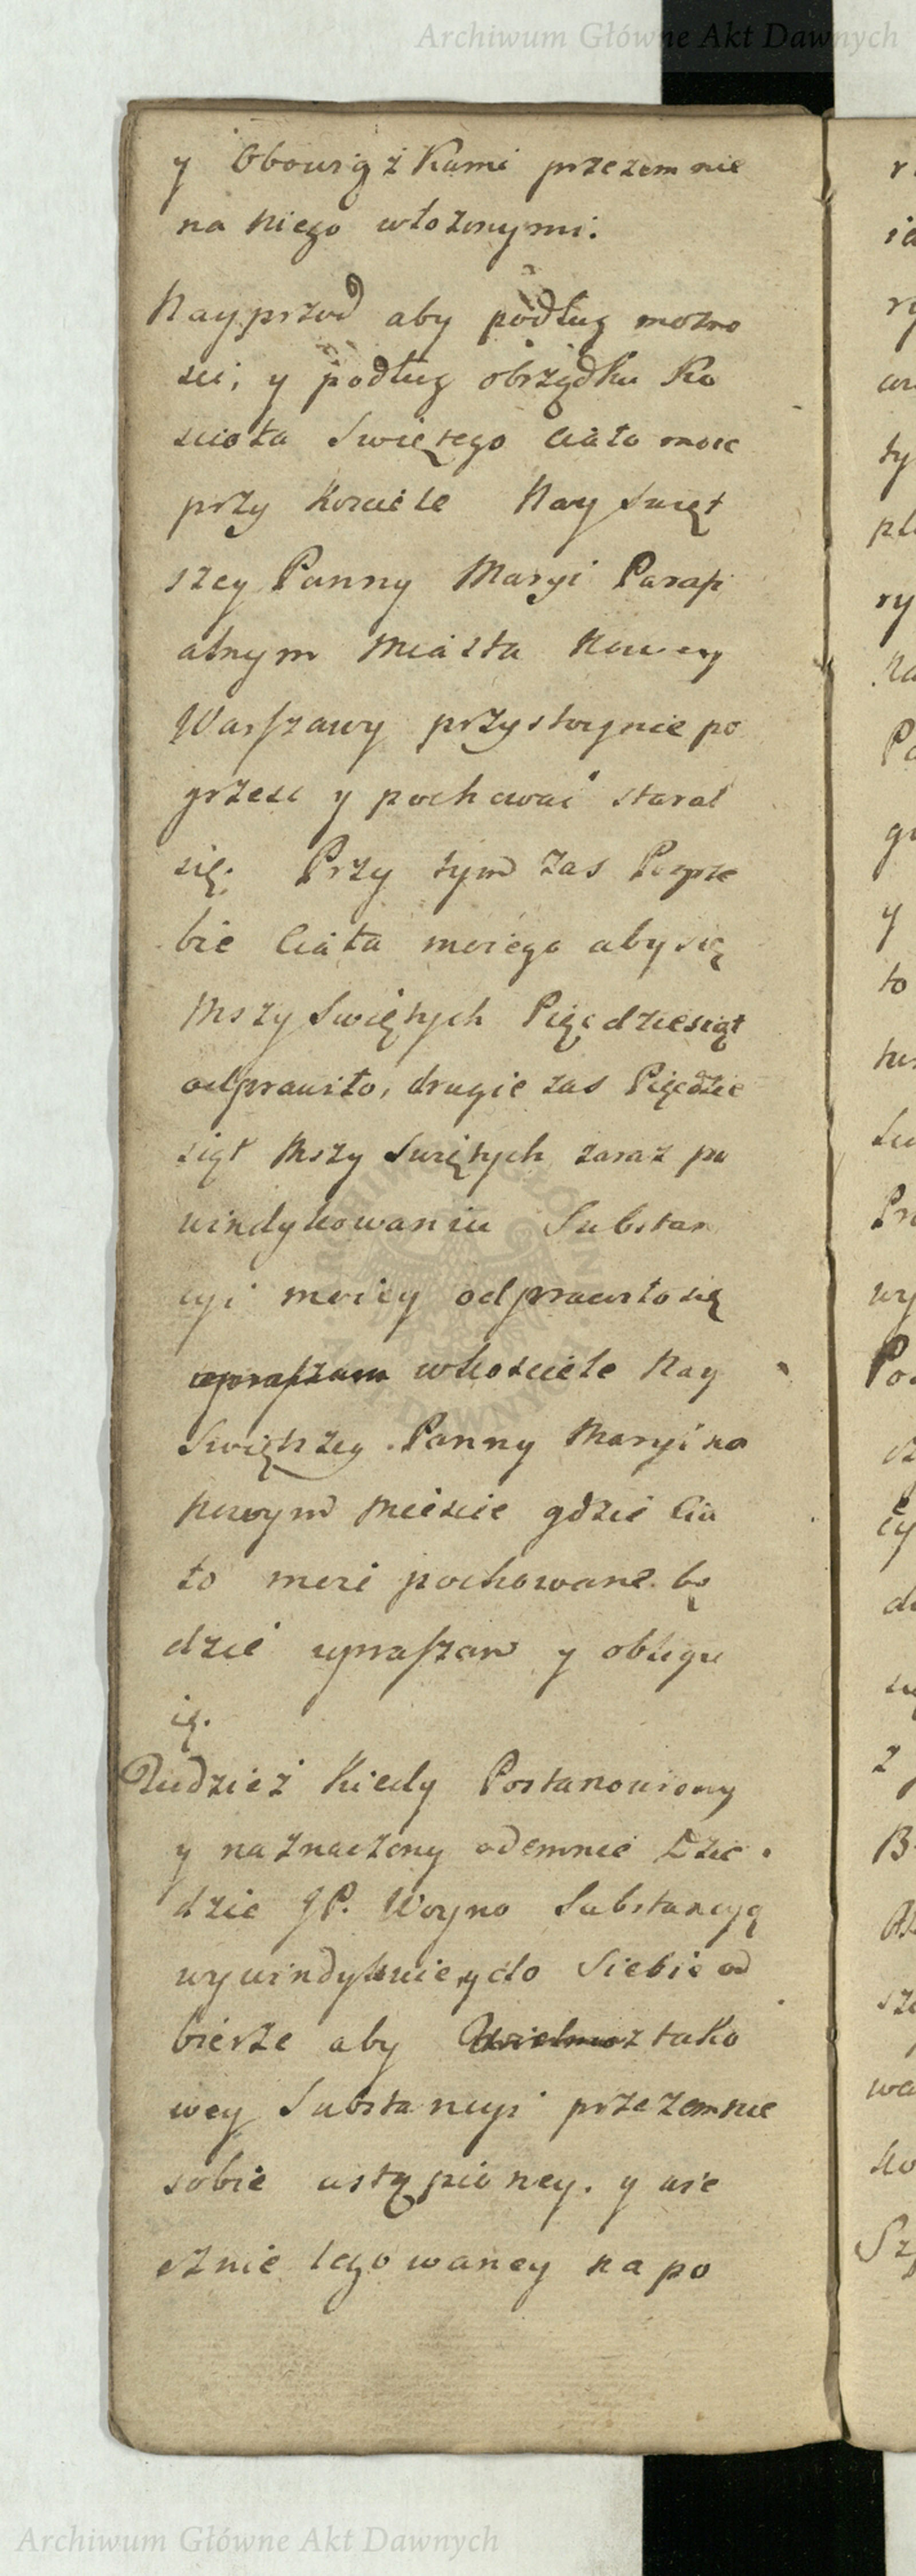 Archiwum Główne Akt Dawnych
y Obowiążkami przezemnie
na niego włożonymi.
Nayprzod aby podług możno
sci, y podług obrządku Ko
scioła Swiętego Ciało moie
przy Kosciele Nay Swięt
szey Panny Maryi Parafi
alnym Miasta Nowey
Warszawy przystoynie po
grzesc y pochować starał
się. Przy tym zas Pogrze
bie Ciała moiego aby się
Mszy Swiętych Pięcdziesiąt
odprawiło, drugie zas Pięcdzie
siąt Mszy Swiętych zaraz po
windykowaniu Substan
cyi moiey odprawiło się
upraszam wkosciele Nay
Swiętszey Panny Maryi na
Nowym Miescie gdzie Cia
ło moie pochowane bę
dzie upraszam y obligu
ię.
Tudzież Kiedy Postanowiony
y naznaczony odemnie Dzie
dzic JP. Woyno Substancyą
wywindykuie, y do Siebie od
bierze aby z tako
wey Substancyi przezemnie
sobie ustąpioney. y wie
cznie legowaney na po
Archiwum Główne Akt Dawnych